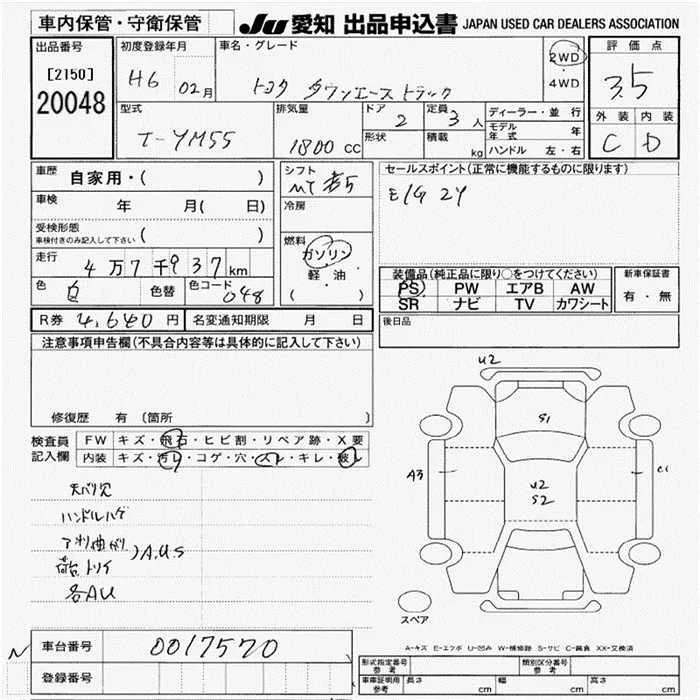 車内保管・守衛保管
JU 愛知 出品申込書 JAPAN USED CAR DEALERS ASSOCIATION
出品番号 初度登録年月 車名・グレード 2WD 評価点
[2150] H6 02月 トヨタ タウンエーストラック ・ 3.5
20048 4WD
型式 排気量 ドア 定員 ディーラー・並行 外装 内装
T-YM55 1800 cc 2 3人 モデル年式 年 C D
形状 積載 kg ハンドル 左・右
車歴 自家用・( ) シフト MT 5 セールスポイント(正常に機能するものに限ります)
車検 年 月( 日) 冷房 E/G 2Y
受検形態
車検付きのみ記入して下さい ( ) 燃料
走行 4万7千937km ガソリン
軽油 装備品(純正品に限り○をつけてください) 新車保証書
色 白 色替 色コード 048 ( ) PS PW エアB AW 有・無
SR ナビ TV カワシート
R券 4,640円 名変通知期限 月 日 後日品
注意事項申告欄(不具合内容等は具体的に記入して下さい)
修復歴 有(箇所 )
検査員 FW キズ・飛石・ヒビ割・リペア跡・X要
記入欄 内装 キズ・汚レ・コゲ・穴・スレ・キレ・破レ
U2
S1
A3
C1
U2
S2
天バリ穴
ハンドルハゲ
アオリ曲ガリ
) A.U.S
荷台トソイ
各AU
スペア
A-キズ E-エクボ U-凹み W-補修跡 S-サビ C-腐食 XX-交換済
車台番号 0017570
登録番号
形式指定番号 参考 類別区分番号 参考
車庫証明用 参考 長さ cm 幅 cm 高さ cm